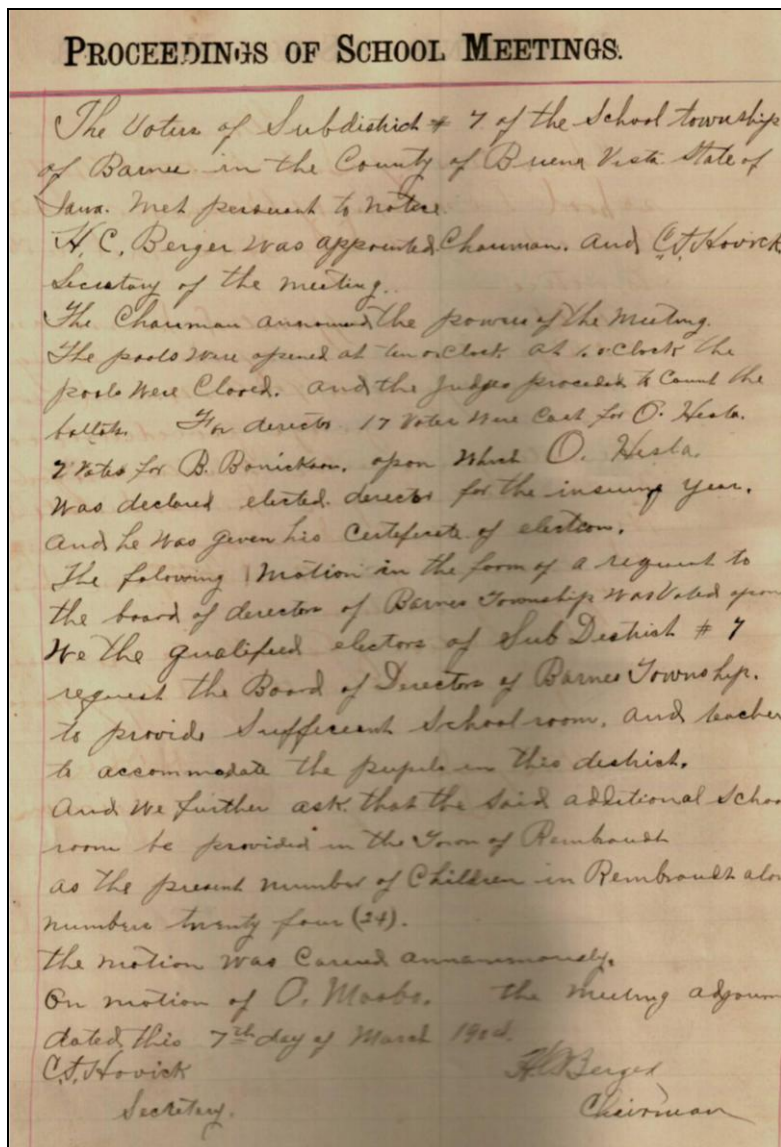 PROCEEDINGS OF SCHOOL MEETINGS.
The Voters of Subdistrict # 7 of the School township
of Barnes in the County of Buena Vista State of
Iowa. Met persuent to notice
H. C. Berger was appointed Chairman. and C.T. Hovick
Secretary of the meeting.
The Chairman announced the powers of the Meeting.
The pools were opened at ten oClock at oClock the
pools were Closed. and the Judges proceded to Count the
ballots. For director 17 Votes were Cast for O. Hesla.
2 Votes for B. Bonickson. upon which O. Hesla.
was declared elected director for the insuing year.
and he was given his Certificate of election.
The folowing Motion in the form of a request to
the board of directors of Barnes Township was Voted upon
We the qualified electors of Sub District # 7
request the Board of Directors of Barnes Township.
to provide Sufficient School room, and teacher
to accommodate the pupils in this district.
And we further ask that the said additional School
room be provided in the Town of Rembrandt
as the present number of Children in Rembrandt alon
numbers twenty four (24).
the motion was Caried annanimously.
On motion of O. Mosbo. the meeting adjourn
dated this 7th day of March 1904.
C.T. Hovick H.C. Berger
Secretary. Chairman